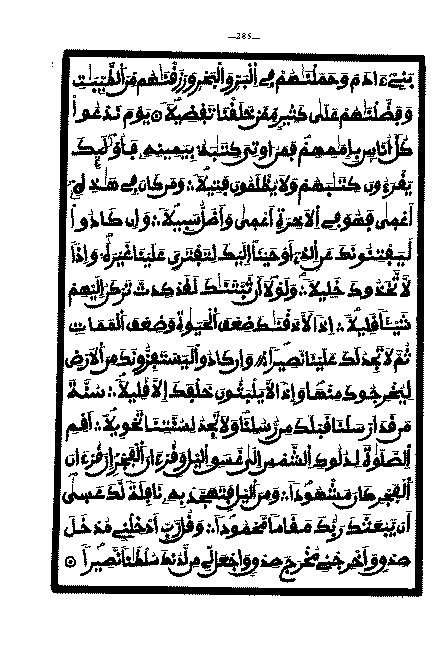 —285—
بَنِےٓ ءَادَمَ وَحَمَلْنَٰهُمْ فِے اِ۬لْبَرِّ وَالْبَحْرِ وَرَزَقْنَٰهُم مِّنَ اَ۬لطَّيِّبَٰتِ
وَفَضَّلْنَٰهُمْ عَلَىٰ كَثِيرٍ مِّمَّنْ خَلَقْنَا تَفْضِيلاً ۞ يَوْمَ نَدْعُواْ
كُلَّ أُنَاسِۢ بِإِمَٰمِهِمْ فَمَنُ ا۟وتِيَ كِتَٰبَهُۥ بِيَمِينِهِۦ فَأُوْلَٰٓئِكَ
يَقْرَءُونَ كِتَٰبَهُمْ وَلَا يُظْلَمُونَ فَتِيلاً ∴ وَمَن كَانَ فِے هَٰذِهِۦٓ
أَعْمَىٰ فَهُوَ فِے اِ۬لَاخِرَةِ أَعْمَىٰ وَأَضَلُّ سَبِيلاً ∴ وَإِن كَادُواْ
لَيَفْتِنُونَكَ عَنِ اِ۬لذِےٓ أَوْحَيْنَآ إِلَيْكَ لِتَفْتَرِيَ عَلَيْنَا غَيْرَهُۥ وَإِذاً
لَّاتَّخَذُوكَ خَلِيلاً ∴ وَلَوْلَآ أَن ثَبَّتْنَٰكَ لَقَدْ كِدتَّ تَرْكَنُ إِلَيْهِمْ
شَيْـٔاً قَلِيلاً ∴ إِذاً لَّأَذَقْنَٰكَ ضِعْفَ اَ۬لْحَيَوٰةِ وَضِعْفَ اَ۬لْمَمَاتِ
ثُمَّ لَا تَجِدُ لَكَ عَلَيْنَا نَصِيراً ∴ وَإِن كَادُواْ لَيَسْتَفِزُّونَكَ مِنَ اَ۬لَارْضِ
لِيُخْرِجُوكَ مِنْهَا وَإِذاً لَّا يَلْبَثُونَ خَلْفَكَ إِلَّا قَلِيلاً ∴ سُنَّةَ
مَن قَدَ اَرْسَلْنَا قَبْلَكَ مِن رُّسُلِنَا وَلَا تَجِدُ لِسُنَّتِنَا تَحْوِيلاً ∴ أَقِمِ
اِ۬لصَّلَوٰةَ لِدُلُوكِ اِ۬لشَّمْسِ إِلَىٰ غَسَقِ اِ۬ليْلِ وَقُرْءَانَ اَ۬لْفَجْرِ إِنَّ قُرْءَانَ
اَ۬لْفَجْرِ كَانَ مَشْهُوداً ∴ وَمِنَ اَ۬ليْلِ فَتَهَجَّدْ بِهِۦ نَافِلَةً لَّكَ عَسَىٰٓ
أَنْ يَّبْعَثَكَ رَبُّكَ مَقَاماً مَّحْمُوداً ∴ وَقُل رَّبِّ أَدْخِلْنِے مُدْخَلَ
صِدْقٍ وَأَخْرِجْنِے مُخْرَجَ صِدْقٍ وَاجْعَل لِّے مِن لَّدُنكَ سُلْطَٰناً نَّصِيراً ۞